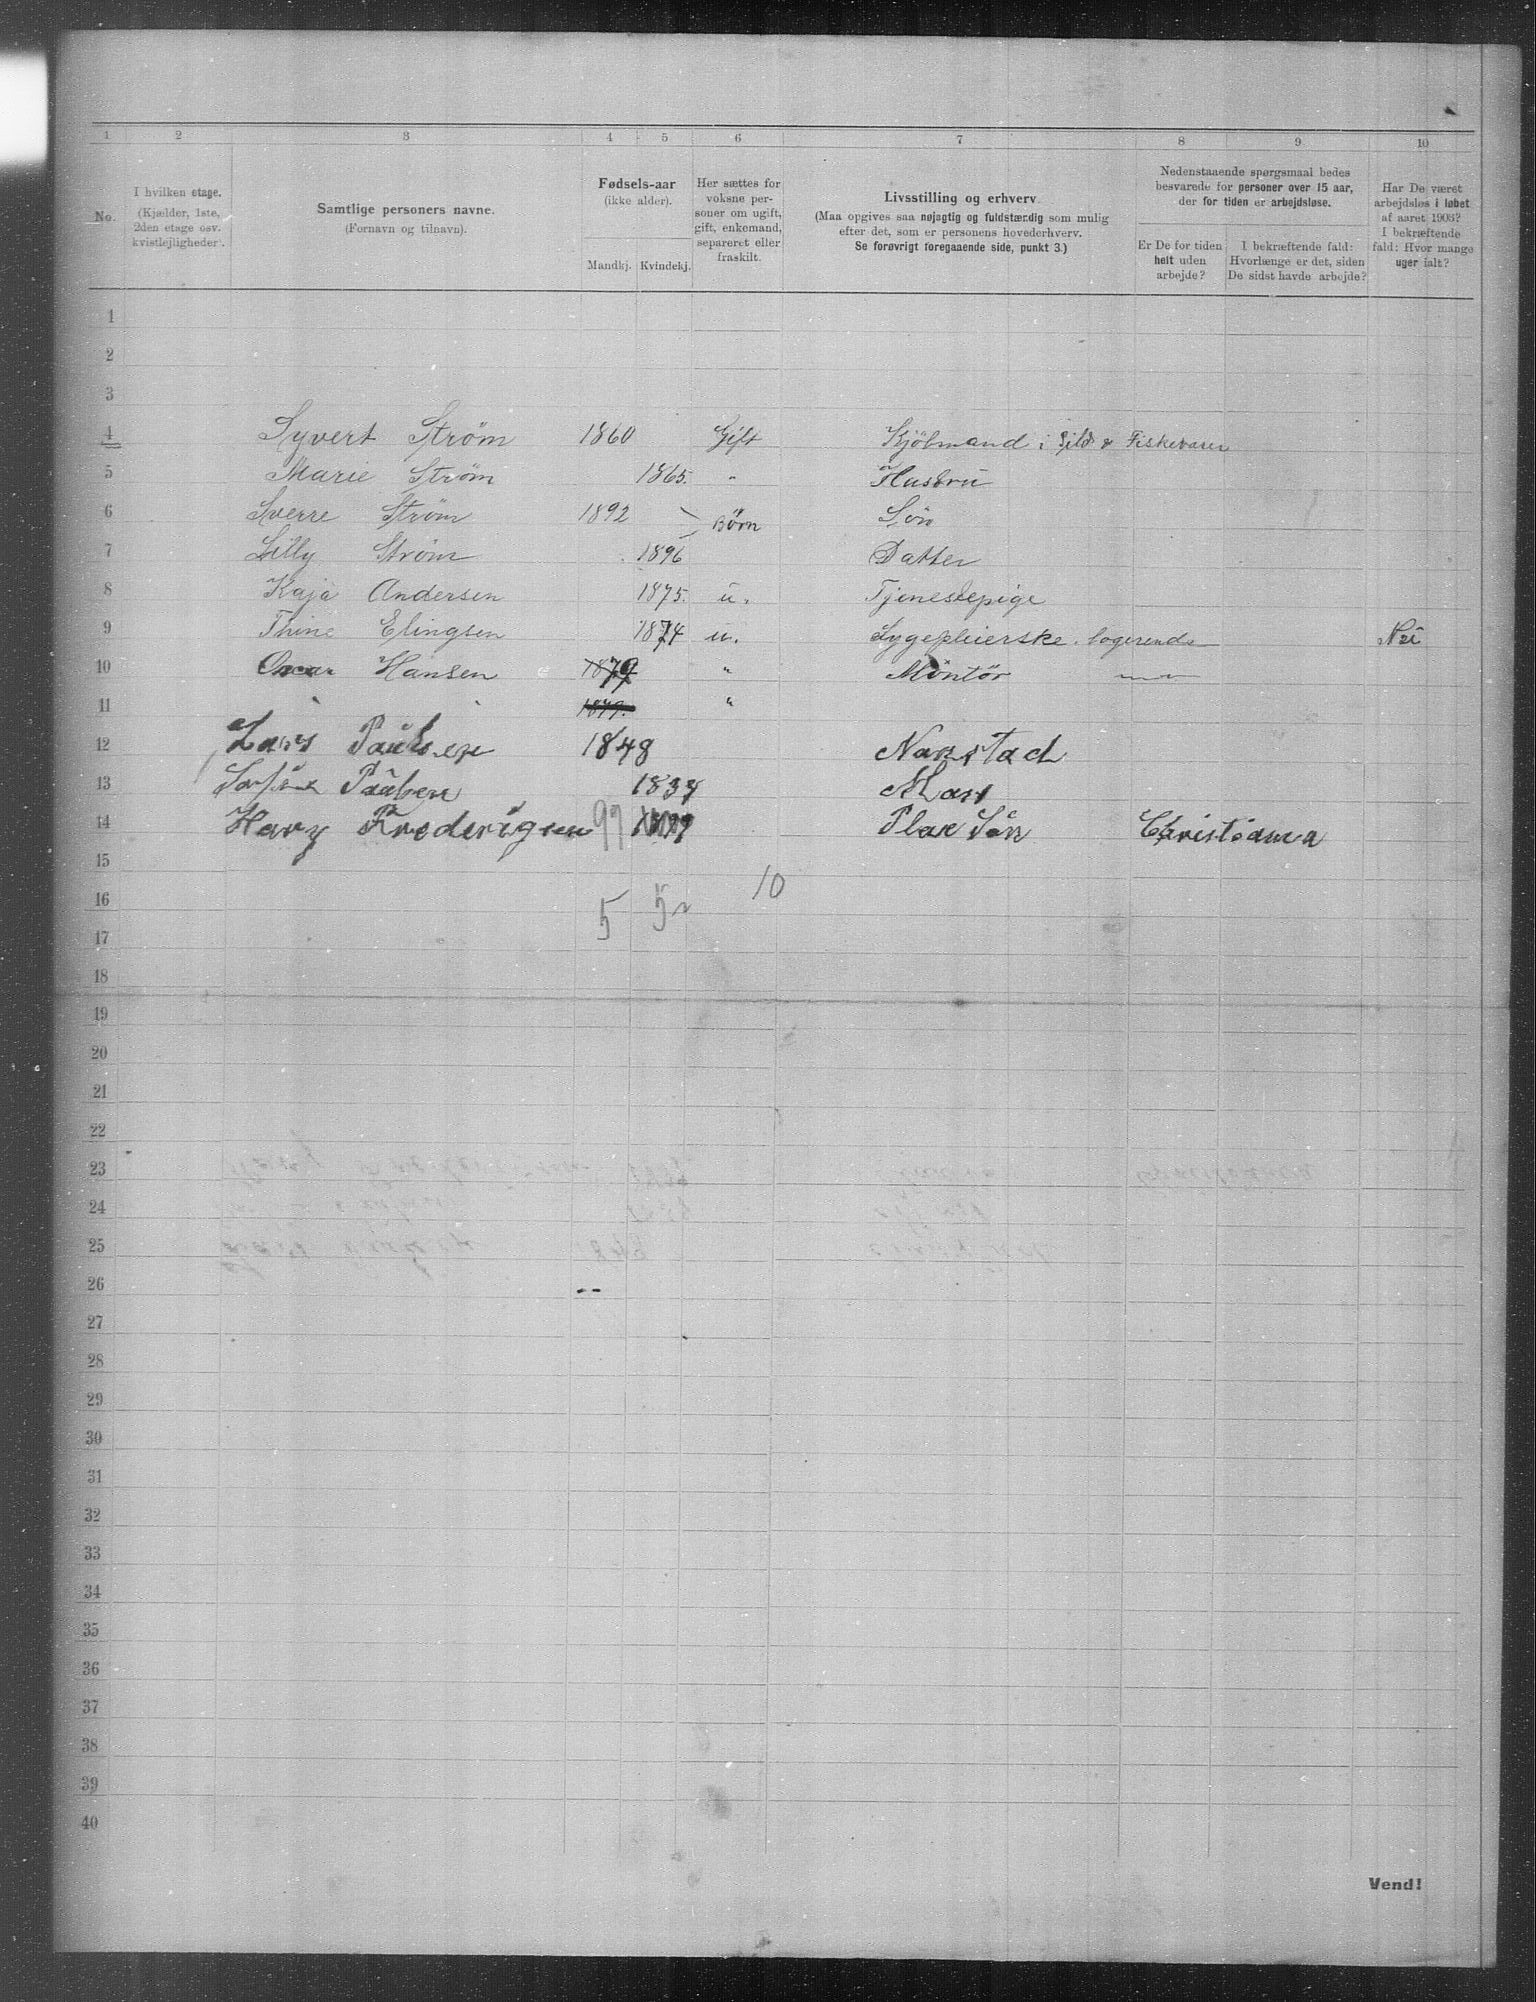 1 2 3 4 5 6 7 8 9 10
No.
I hvilken etage.
(Kjælder, 1ste,
2den etage osv.
kvistleiligheder).
Samtlige personers navne.
(Fornavn og tilnavn).
Fødsels-aar
(ikke alder).
Mandkj. Kvindekj.
Her sættes for
voksne per-
soner om ugift,
gift, enkemand,
separeret eller
fraskilt.
Livsstilling og erhverv
(Maa opgives saa nøjagtig og fuldstændig som mulig
efter det, som er personens hovederhverv.
Se forøvrigt foregaaende side, punkt 3.)
Nedenstaaende spørgsmaal bedes
besvarede for personer over 15 aar,
der for tiden er arbejdsløse.
Er De for tiden
helt uden
arbejde?
I bekræftende fald:
Hvorlænge er det, siden
De sidst havde arbejde?
Har De været
arbejdsløs i løbet
af aaret 1903?
I bekræftende
fald: Hvor mange
uger ialt?
1
2
3
4 Syvert Strøm 1860 Gift Kjøbmand i Sild & Fiskevarer
5 Marie Strøm 1865. " Husfru
6 Sverre Strøm 1892 Børn Søn
7 Lilly Strøm 1896 Datter
8 Kaja Andersen 1875. u. Tjenestepige
9 Thine Elingsen 1874 u. Sygepleierske. logerende Nei
10 Oscar Hansen 1879 " Montør
11 1879. "
12 Lars 1848
13
14 Hary Frederigsen 99 Christiania
15
16 5 5 10
17
18
19
20
21
22
23
24
25
26
27
28
29
30
31
32
33
34
35
36
37
38
39
40
Vend!